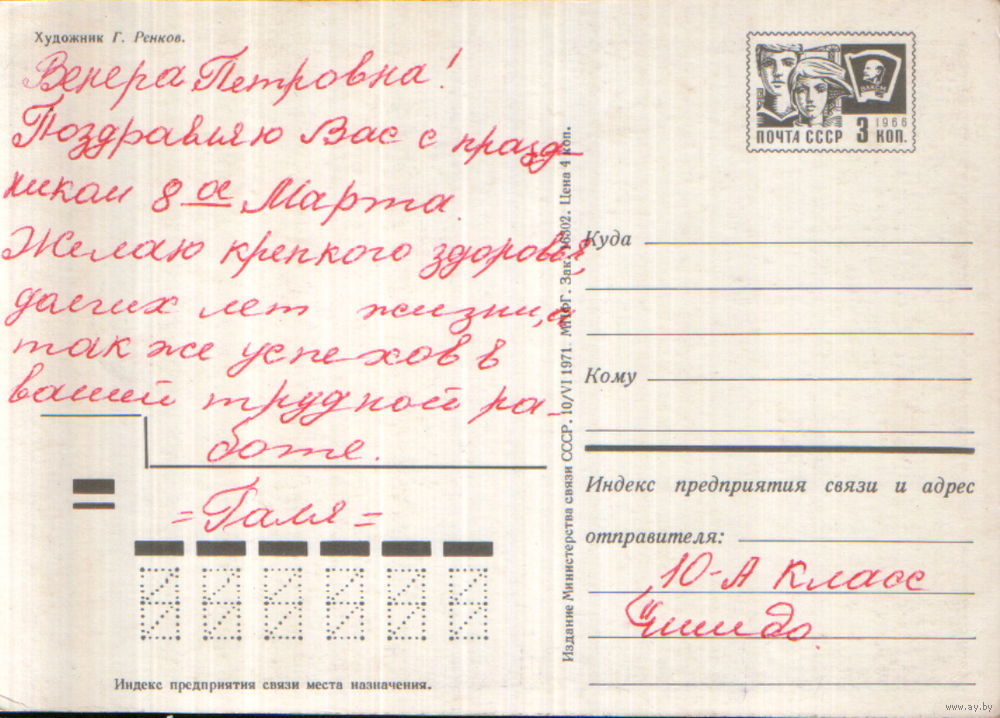 Художник Г. Ренков.
Венера Петровна!
Поздравляю Вас с празд-
ником 8 ое Марта.
Желаю крепкого здоровья,
долгих лет жизни, а
так же успехов в
вашей трудной ра-
боте.
= Галя =
Индекс предприятия связи места назначения.
Издание Министерства связи СССР. 10/VI 1971. МПФГ. Зак. 16302. Цена 4 коп.
ВЛКСМ
1966
ПОЧТА СССР 3 КОП.
Куда
Кому
Индекс предприятия связи и адрес
отправителя:
10-А класс
www.ay.by